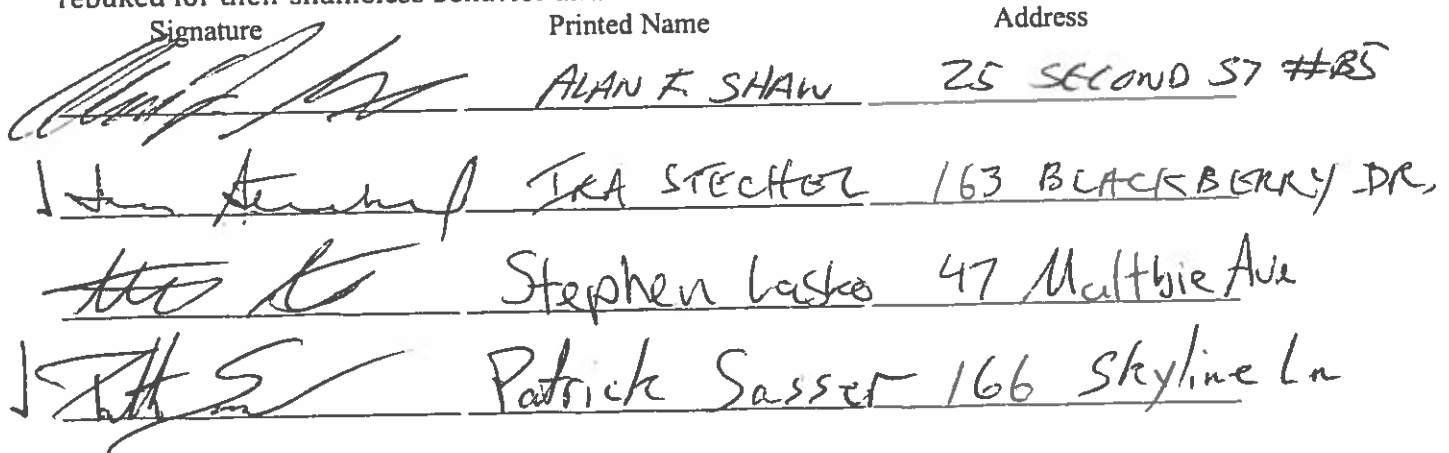 rebuked for their shameless behavior
Signature Printed Name Address
ALAN F. SHAW 25 SECOND ST #B5
IRA STECHEL 163 BLACKBERRY DR,
Stephen Lasko 47 Maltbie Ave
Patrick Sasser 166 Skyline Ln